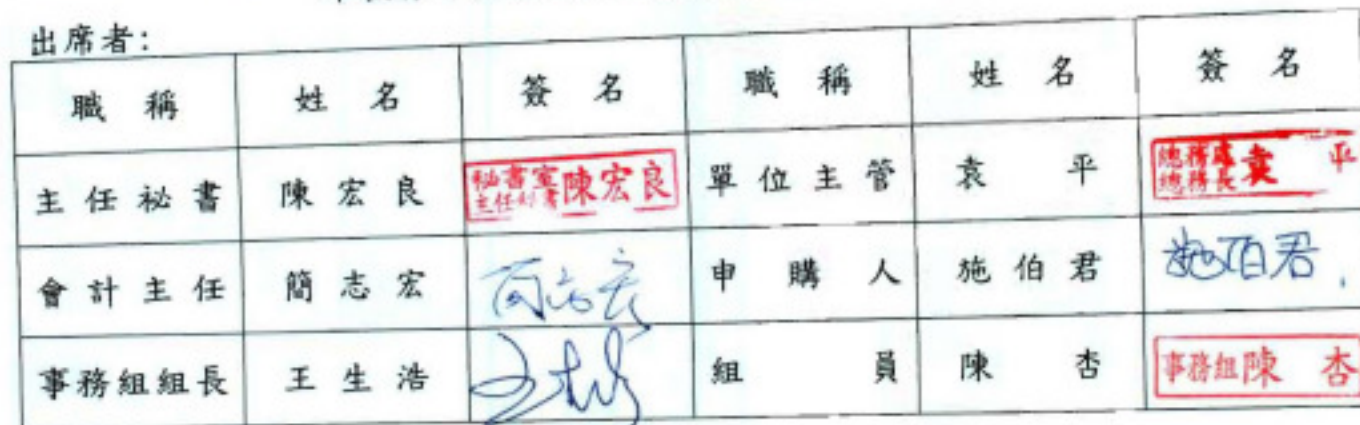 出席者:
職稱 姓名 簽名 職稱 姓名 簽名
主任祕書 陳宏良 秘書室主任秘書陳宏良 單位主管 袁平 總務處總務長袁平
會計主任 簡志宏 簡志宏 申購人 施伯君 施伯君
事務組組長 王生浩 組員 陳杏 事務組陳杏